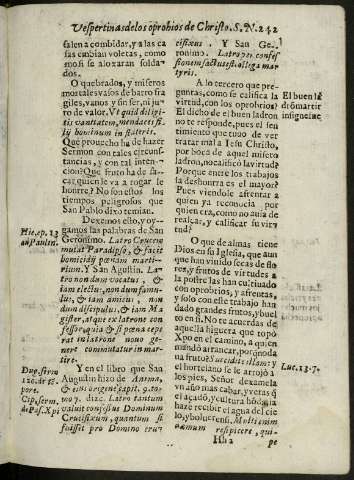 Vespertinas de los oprobios de Christo. S. N. 242
salen a combidar, y a las ca
sas embian voletas, como
mo si se aloxaran solda-
dos.
O quebrados, y miseros
mortales vasos de barro fra
giles, vanos, y sin ser, ni ju
ro de valor. Vt quid diligi-
tis vanitatem, mendaces fi-
lij hominum in stateris.
Que prouecho ha de hazer
Sermon con tales circuns-
tancias, y con tal inten-
cion? Que fruto ha de sa-
car, quien le va a rogar le
honrre? No son estos los
tiempos peligrosos que
San Pablo dixo temian.
Dexemos esto, y oy-
gamos las palabras de San
Geronimo. Latro Crucem
mutat Paradisso, & facit
homicidij pœnam martir-
rium. Y San Agustin. La-
tro nondum vocatus, &
iam electus, nondum famu-
lus, & iam amicus, non
dum discipulus, & iam Ma
gister, atque ex latrone con
fessor, quia & si pœna cœpe
rat in latrone nouo ge-
nere commutatur in mar-
tire.
Y en el libro que San
Augustin hizo de Anima,
& eius origene capit. 9. to-
mo 7. dize. Latro tantum
valuit confessus Dominum
Crucifixum, quantum si
fuisset pro Domino cru-
Hie. ep. 13
ad Paulin.
Dug. serm
120. de tẽ-
pore.
Cip. serm.
de Pas. Xpi
cifixus. Y San Ge-
ronimo. Latro per confes
sionem factus est collega mar
tyris.
A lo tercero que pre-
guntas, como se califica la
virtud, con los oprobrios?
El dicho de el buen ladron
no te responde, pues el sen
timiento que tuuo de ver
tratar mal a Iesu Christo,
por boca de aquel misero
ladron, no calificò la virtud?
Porque entre los trabajos
la deshonrra es el mayor?
Pues viendole afrentar a
quien ya reconocia por
quien era, como no auia de
realçar, y calificar su vir
tud?
O que de almas tiene
Dios en su Iglesia, que aun
que han viuido secas de flo
res, y frutos de virtudes a
la postre las han cultiuado
con oprobrios, y afrentas,
y solo con este trabajo han
dado grandes frutos, y bue
nos. No te acuerdas de
aquella higuera que topò
Xpo en el camino, a quien
mandò arrancar, porq̃ no da
ua fruto? Succidite illam: y
el hortelano se le arrojò a
los pies, Señor dexamela
vn año mas cabar, y veras q̃
el açadò, y cultura hò da
haze recibir el agua del cie
lo, y boluerse.
El buen lẽ
drõ martir
insigne fue
Luc. 13. 7.
Hh 2
pe